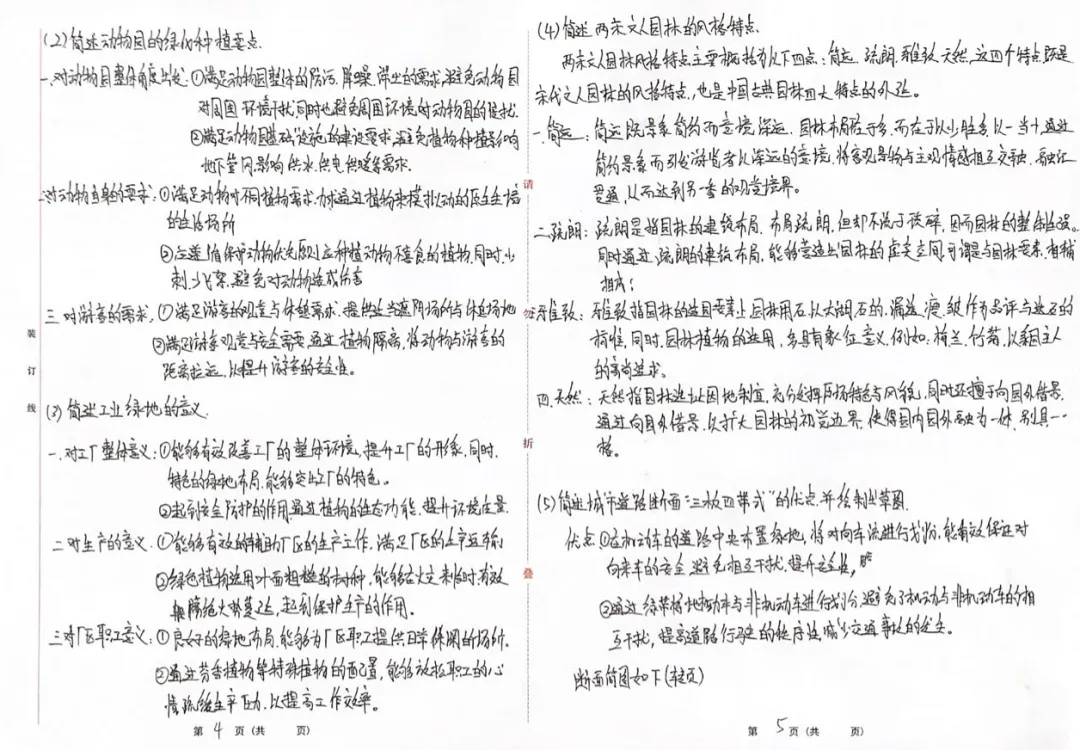 (2) 简述动物园的绿化种植要点.
一、对动物园整体角度出发 ①满足动物园整体的防污、降噪、滞尘的需求,避免动物园
对周围环境干扰,同时也避免周围环境对动物园的侵扰.
②满足动物园基础设施的建设要求,避免植物种植影响
地下管网,影响供水、供电、供暖等需求.
二、对动物自身的要求:①满足动物对不同植物需求,力求通过植物来模拟动的原生生境
的生活场所
②应遵循保护动物优先原则,应种植动物不喜食的植物,同时,少
刺、少飞絮,避免对动物造成伤害
三、对游客的需求,①满足游客的观赏与休憩需求,提供出遮阴场所与休息场地
②满足游客观赏与安全需要,通过植物隔离,将动物与游客的
距离拉远,以提升游客的安全性。
(3) 简述工业绿地的意义.
一、对工厂整体意义:①能够有效改善工厂的整体环境,提升工厂的形象,同时,
特色的绿地布局,能够突出工厂的特色。
②起到安全防护的作用,通过植物的生态功能,提升环境质量.
二、对生产的意义.①能够有效的辅助厂区的生产工作,满足厂区的生产运输
②绿色植物选用叶面粗糙的树种,能够在火灾来临时,有效
隔绝火势蔓延,起到保护生产的作用.
三、对厂区职工意义:①良好的绿地布局,能够为厂区职工提供日常休闲的场所.
②通过芳香植物等特殊植物的配置,能够放松职工的心
情,疏缓生产压力,以提高工作效率。
第 4 页(共 页)
装
订
线
请
勿
折
叠
(4) 简述两宋文人园林的风格特点.
两宋文人园林风格特点主要概括为以下四点:简远、疏朗、雅致、天然,这四个特点既是
宋代文人园林的风格特点,也是中国古典园林四大特点的外延。
一.简远:简远既景象简约而意境深远.园林布局在于多,而在于以少胜多,以一当十,通过
简约景象而引发游览者以深远的意境,将客观景物与主观情感相互交融、融汇
贯通,从而达到另一番的观赏境界。
二.疏朗:疏朗是指园林的建筑布局.布局疏朗,但却不流于琐碎,因而园林的整体性强。
同时通过疏朗的建筑布局,能够营造出园林的虚实空间,可谓是与园林要素,有稍
相离;
雅致:雅致指园林的造园要素上,园林用石,以太湖石的,漏、透、瘦、皱作为品评与选石的
标准,同时,园林植物的选用,多具有象征意义,例如:梅兰、竹菊,以彰园主人
的高尚追求。
四.天然:天然指园林选址因地制宜,充分发挥原场特色与风貌,同时还擅于向园外借景.
通过向园外借景,以扩大园林的视觉边界,使得园内园外融为一体,别具一
格。
(5) 简述城市道路断面“三板四带式”的优点.并绘制出草图.
优点:①在机动车的道路中央布置绿地,将对向车流进行划分,能有效保证对
向来车的安全,避免相互干扰,提升安全性,
②通过绿带将机动车与非机动车进行划分,避免了机动与非机动车的相
互干扰,提高道路行驶的秩序性,减少交通事故的发生。
断面简图如下(转页)
第 5 页(共 页)